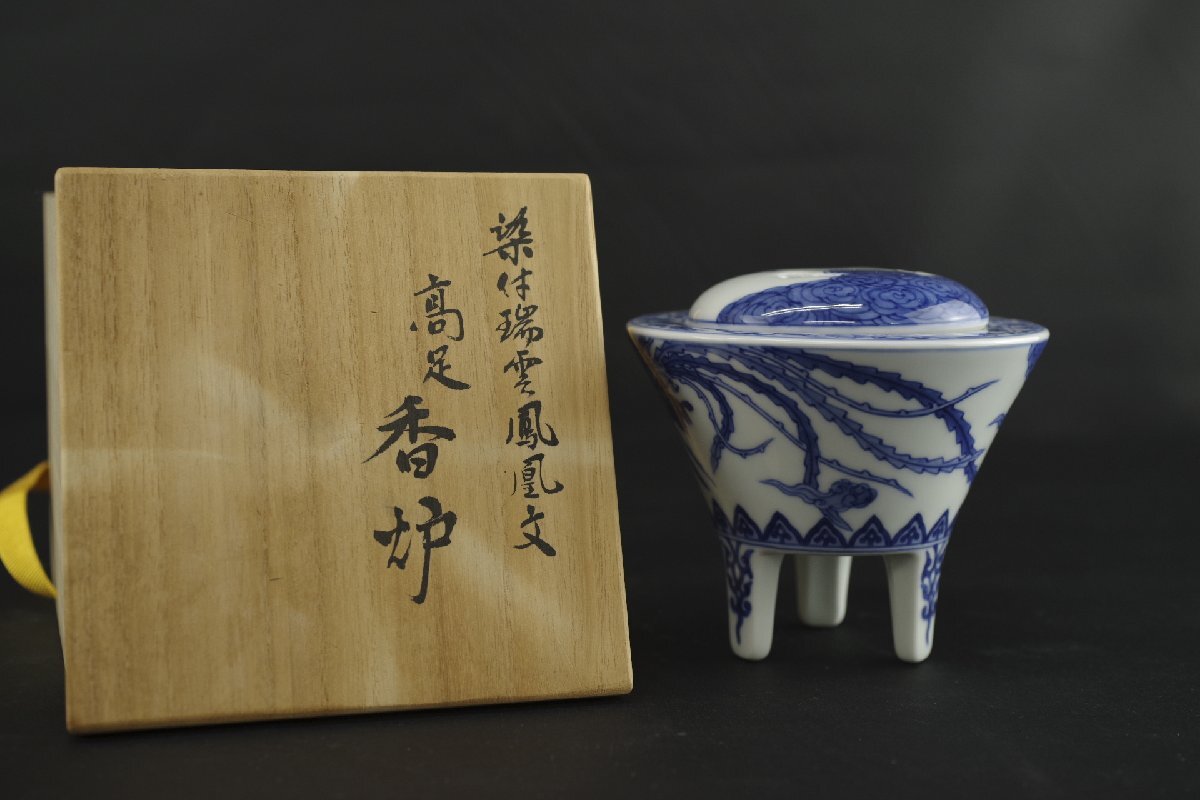 染付瑞雲鳳凰文
高足
香炉